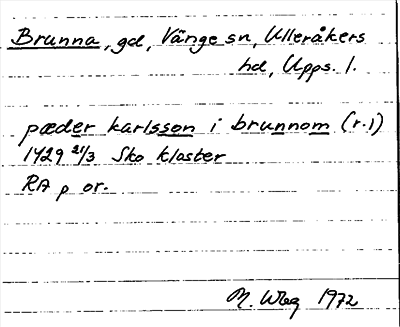 Brunna, gd, Vänge sn, Ulleråkers
hd, Upps. l.
pæder karlsson i brunnom (r. 1)
1429 21/3 Sko kloster
RA p or.
M. Wbg 1972